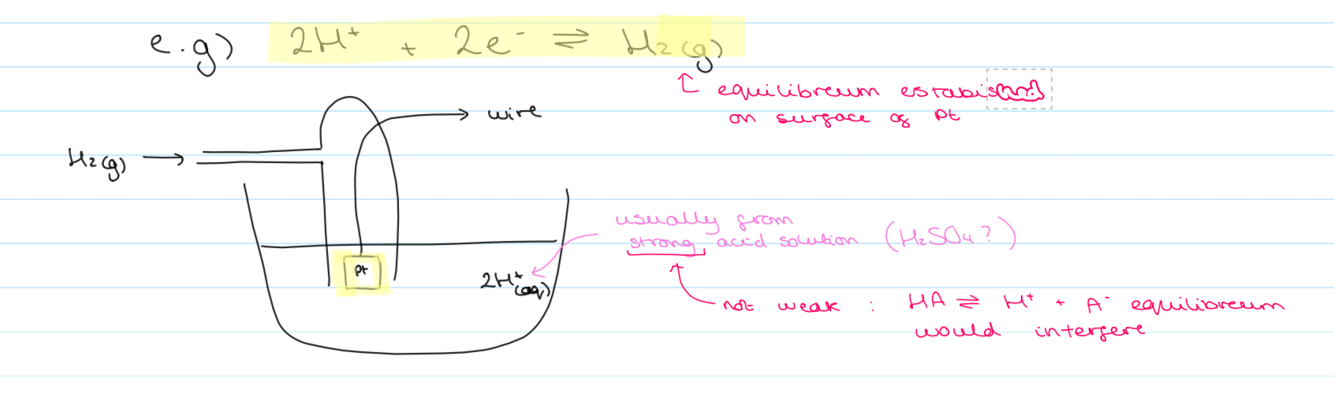 e.g) 2H⁺ + 2e⁻ ⇌ H₂(g)
equilibreum estabis
on surface of Pt
wire
H₂(g)
usually from
strong acid solution (H₂SO₄?)
Pt
2H⁺(aq)
not weak : HA ⇌ H⁺ + A⁻ equilibreum
would interfere